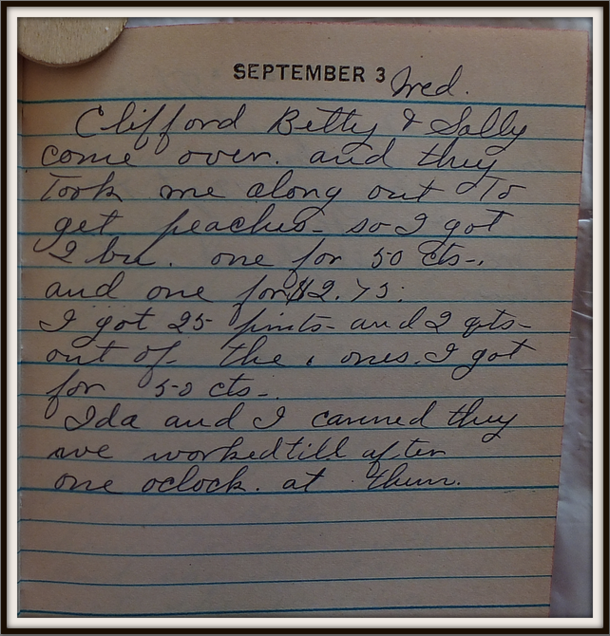 SEPTEMBER 3 Wed.
Clifford Betty & Sally
come over. and they
Took me along out To
get peaches- so I got
2 bu. one for 50 cts-.
and one for $2.75.
I got 25 pints- and 2 qts-
out of the ones. I got
for 50 cts-.
Ida and I canned they
we worked till after
one oclock. at them.